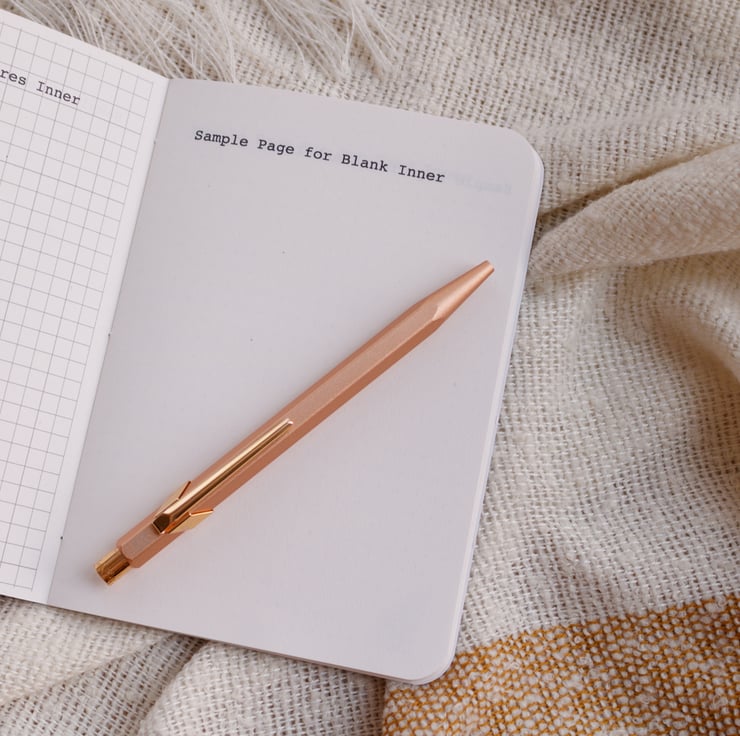 Inner
Sample Page for Blank Inner